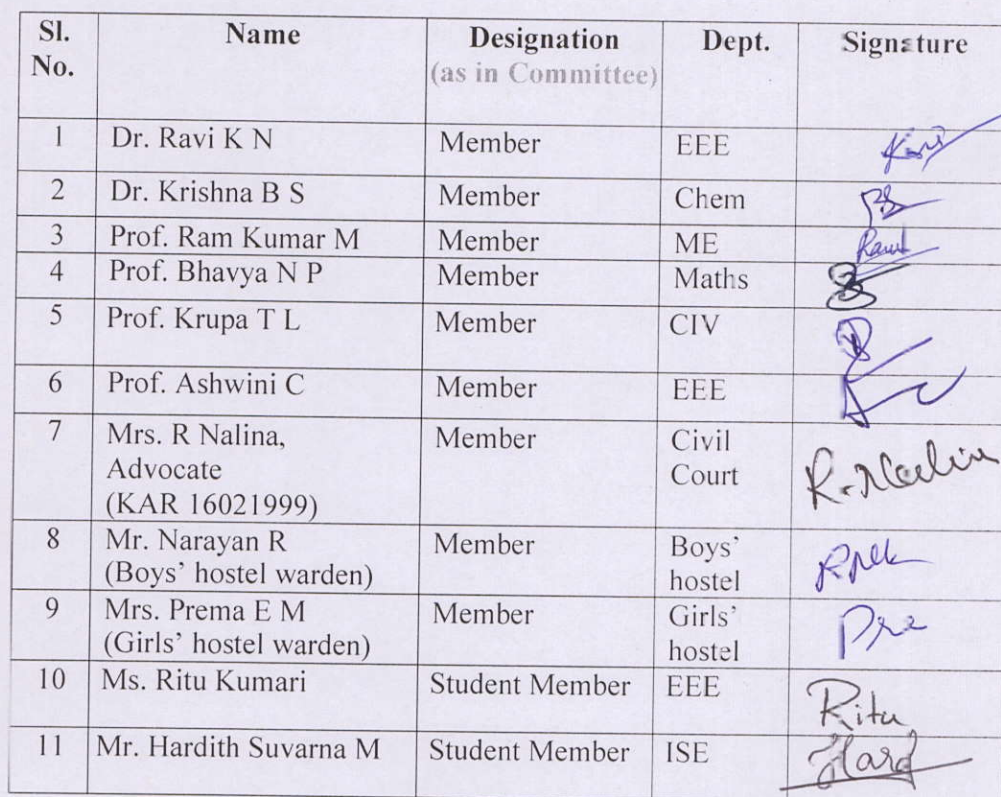 Sl. No. Name Designation (as in Committee) Dept. Signature
1 Dr. Ravi K N Member EEE
2 Dr. Krishna B S Member Chem
3 Prof. Ram Kumar M Member ME
4 Prof. Bhavya N P Member Maths
5 Prof. Krupa T L Member CIV
6 Prof. Ashwini C Member EEE
7 Mrs. R Nalina, Member Civil
Advocate Court
(KAR 16021999)
8 Mr. Narayan R Member Boys’
(Boys’ hostel warden) hostel
9 Mrs. Prema E M Member Girls’
(Girls’ hostel warden) hostel
10 Ms. Ritu Kumari Student Member EEE Ritu
11 Mr. Hardith Suvarna M Student Member ISE Hard